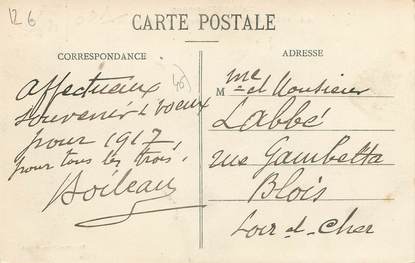 126
CARTE POSTALE
CORRESPONDANCE
ADRESSE
45)
Affectueux
souvenir & voeux
pour 1917
pour tous les trois,
Boileau
M me et Monsieur
Labbé
rue Gambetta
Blois
Loir-et-Cher